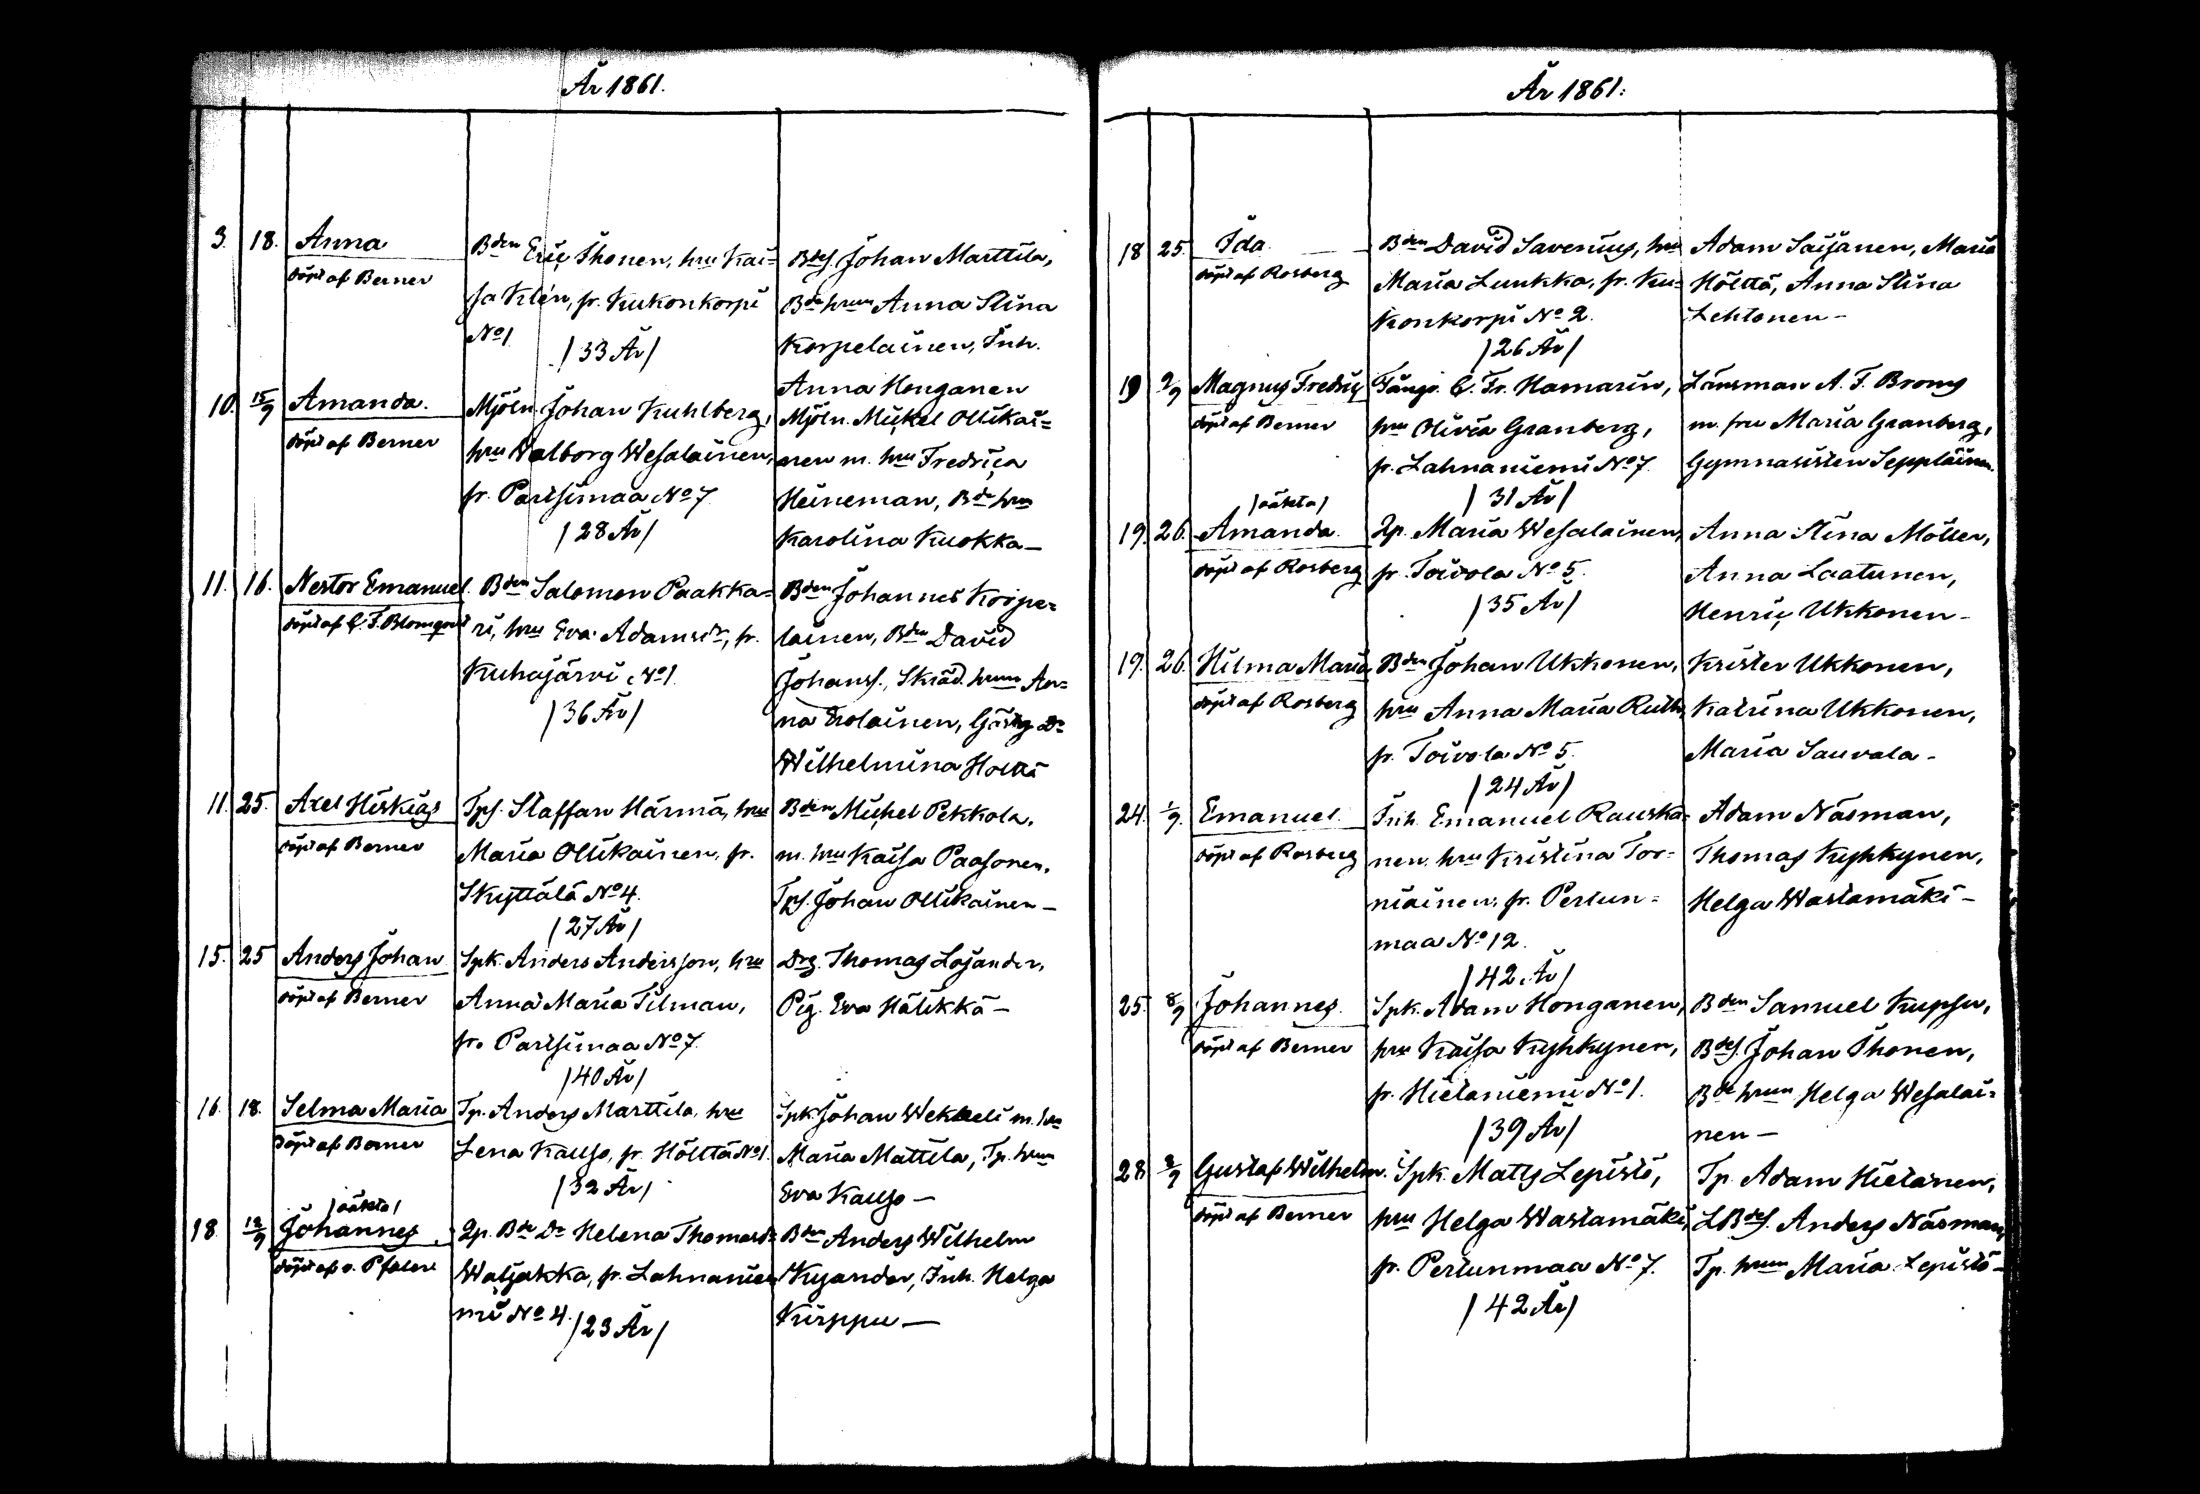 År 1861.
3. 18. Anna
döpt af Berner
Bden Eric Ihonen, hru Kai=
sa Klén, fr. Kukonkorpi
No 1
/33 År/
Bdes. Johan Marttila,
Bde hrun Anna Stina
Korpelainen, Inh.
Anna Honganen
10. 15/9 Amanda.
döpt af Berner
Mjöln. Johan Kuhlberg,
hru Walborg Wesalainen,
fr. Partsimaa No 7
/28 År/
Mjöln. Mickel Ollikai=
nen m. hru Fredrica
Heineman, Bde hru
Karolina Kuokka—
11. 16. Nestor Emanuel.
döpt af C. F. Blomqvist
Bden Salomon Paakka=
ri, hru Eva Adamsdr, fr.
Kuhajärvi No 1.
/36 År/
Bden Johannes Korpe=
lainen, Bden David
Johans., Skräd. hrun An=
na Eolainen, Gästg. Dr
Wilhelmina Holtta
11. 25. Axel Hiskias
döpt af Berner
Tps. Staffan Härmä, hru
Maria Ollikainen, fr.
Skyttälä No 4.
/27 År/
Bden Michel Pekkola,
m. hru Kaisa Paasonen,
Tps. Johan Ollikainen—
15. 25 Anders Johan
döpt af Berner
Spk. Anders Andersson, hru
Anna Maria Tilman,
fr. Partsimaa No 7.
/40 År/
Drg. Thomas Lojander,
Pig. Eva Hälikkä—
16. 18. Selma Maria
döpt af Berner
Tp. Anders Marttila, hru
Lena Kauso, fr. Hölttä No 1.
/32 År/
Spk. Johan Wekkeli m. hru
Maria Mattila, Tp. hrun
Eva Kauso—
18 12/9 /oäkta/
Johannes.
döpt af v. Pfaler
Qp. Bde Dr Helena Thomasdr
Watjakka, fr. Lahnanie=
mi No 4. /23 År/
Bden Anders Wilhelm
Kyander, Inh. Helga
Kirppu—
År 1861.
18 25. Ida
döpt af Rosberg
Bden David Savenius, hru
Maria Luukka, fr. Ku=
konkorpi No 2.
/26 År/
Adam Saijanen, Maria
Hölttä, Anna Stina
Lehtonen—
19 2/9 Magnus Fredric
döpt af Berner
Fångv. C. Fr. Hamarin,
hru Olivia Granberg,
fr. Lahnaniemi No 7.
/31 År/
Länsman A. F. Broms
m. fru Maria Granberg,
Gymnasisten Seppläinen.
19. 26. /oäkta/
Amanda.
döpt af Rosberg
Qp. Maria Wesalainen,
fr. Toivola No 5.
/35 År/
Anna Stina Möller,
Anna Laatunen,
Henric Ukkonen—
19. 26. Hilma Maria
döpt af Rosberg
Bden Johan Ukkonen,
hru Anna Maria Ruth,
fr. Toivola No 5.
/24 År/
Krister Ukkonen,
Katrina Ukkonen,
Maria Sauvala—
24. 1/9. Emanuel.
döpt af Rosberg
Inh. Emanuel Rauska=
nen, hru Kristina Tor=
niainen, fr. Pertun=
maa No 12.
/42 År/
Adam Näsman,
Thomas Kyhkynen,
Helga Wastamäki—
25. 8/9 Johannes.
döpt af Berner
Spk. Adam Honganen,
hru Kaisa Kyhkynen,
fr. Hietaniemi No 1.
/39 År/
Bden Samuel Kupsu,
Bdes. Johan Ihonen,
Bde hrun Helga Wesalai=
nen—
28. 8/9 Gustaf Wilhelm.
döpt af Berner
Spk. Matts Lepistö,
hru Helga Wastamäki,
fr. Pertunmaa No 7.
/42 År/
Tp. Adam Hietanen,
LBdes. Anders Näsman,
Tp. hrun Maria Lepistö—